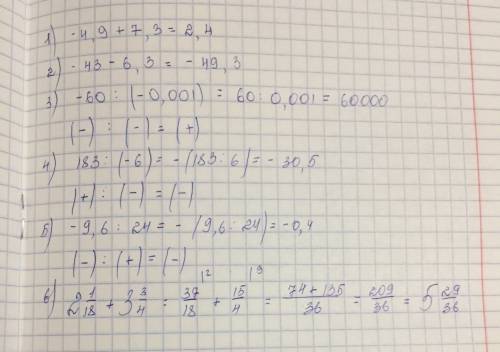 1) -4,9 + 7,3 = 2,4
2) -43 - 6,3 = -49,3
3) -60 : (-0,001) = 60 : 0,001 = 60000
(-) : (-) = (+)
4) 183 : (-6) = -(183 : 6) = -30,5
(+) : (-) = (-)
5) -9,6 : 24 = -(9,6 : 24) = -0,4
(-) : (+) = (-)
6) 2 1/18 + 3 3/4 = 37/18 |2 + 15/4 |9 = 74+135/36 = 209/36 = 5 29/36